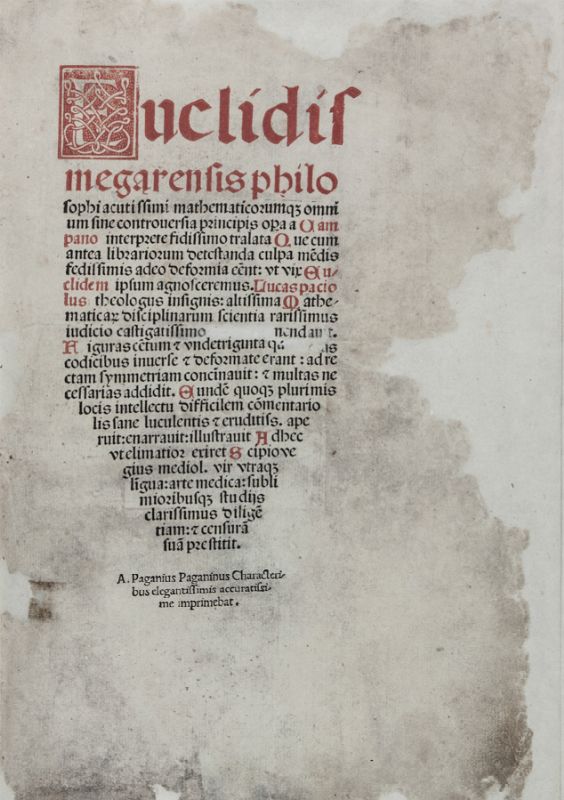 Euclidis
megarensis philo
sophi acutissimi mathematicorumqꝫ omni
um sine controuersia principis oꝑa a Cam
pano interprete fidissimo tralata Que cum
antea librariorum detestanda culpa mẽdis
fedissimis adeo deformia eẽnt: vt vix Eu-
clidem ipsum agnosceremus. Lucas pacio
lus theologus insignis: altissima Mathe-
maticaꝝ disciplinarum scientia rarissimus
iudicio castigatissimo
Figuras cẽtum ⁊ vndetriginta
codicibus inuerse ⁊ deformate erant: ad re
ctam symmetriam concĩnauit: ⁊ multas ne
cessarias addidit. Eundẽ quoqꝫ plurimis
locis intellectu difficilem cõmentario
lis sane luculentis ⁊ eruditiss. ape
ruit: enarrauit: illustrauit Adhec
vt elimatior exiret Scipio ve
gius mediol. vir vtraqꝫ
lĩgua: arte medica: subli
mioribusqꝫ studijs
clarissimus diligẽ
tiam: ⁊ censurã
suã prestitit.
A. Paganius Paganinus Characteri-
bus elegantissimis accuratissi-
me imprimebat.